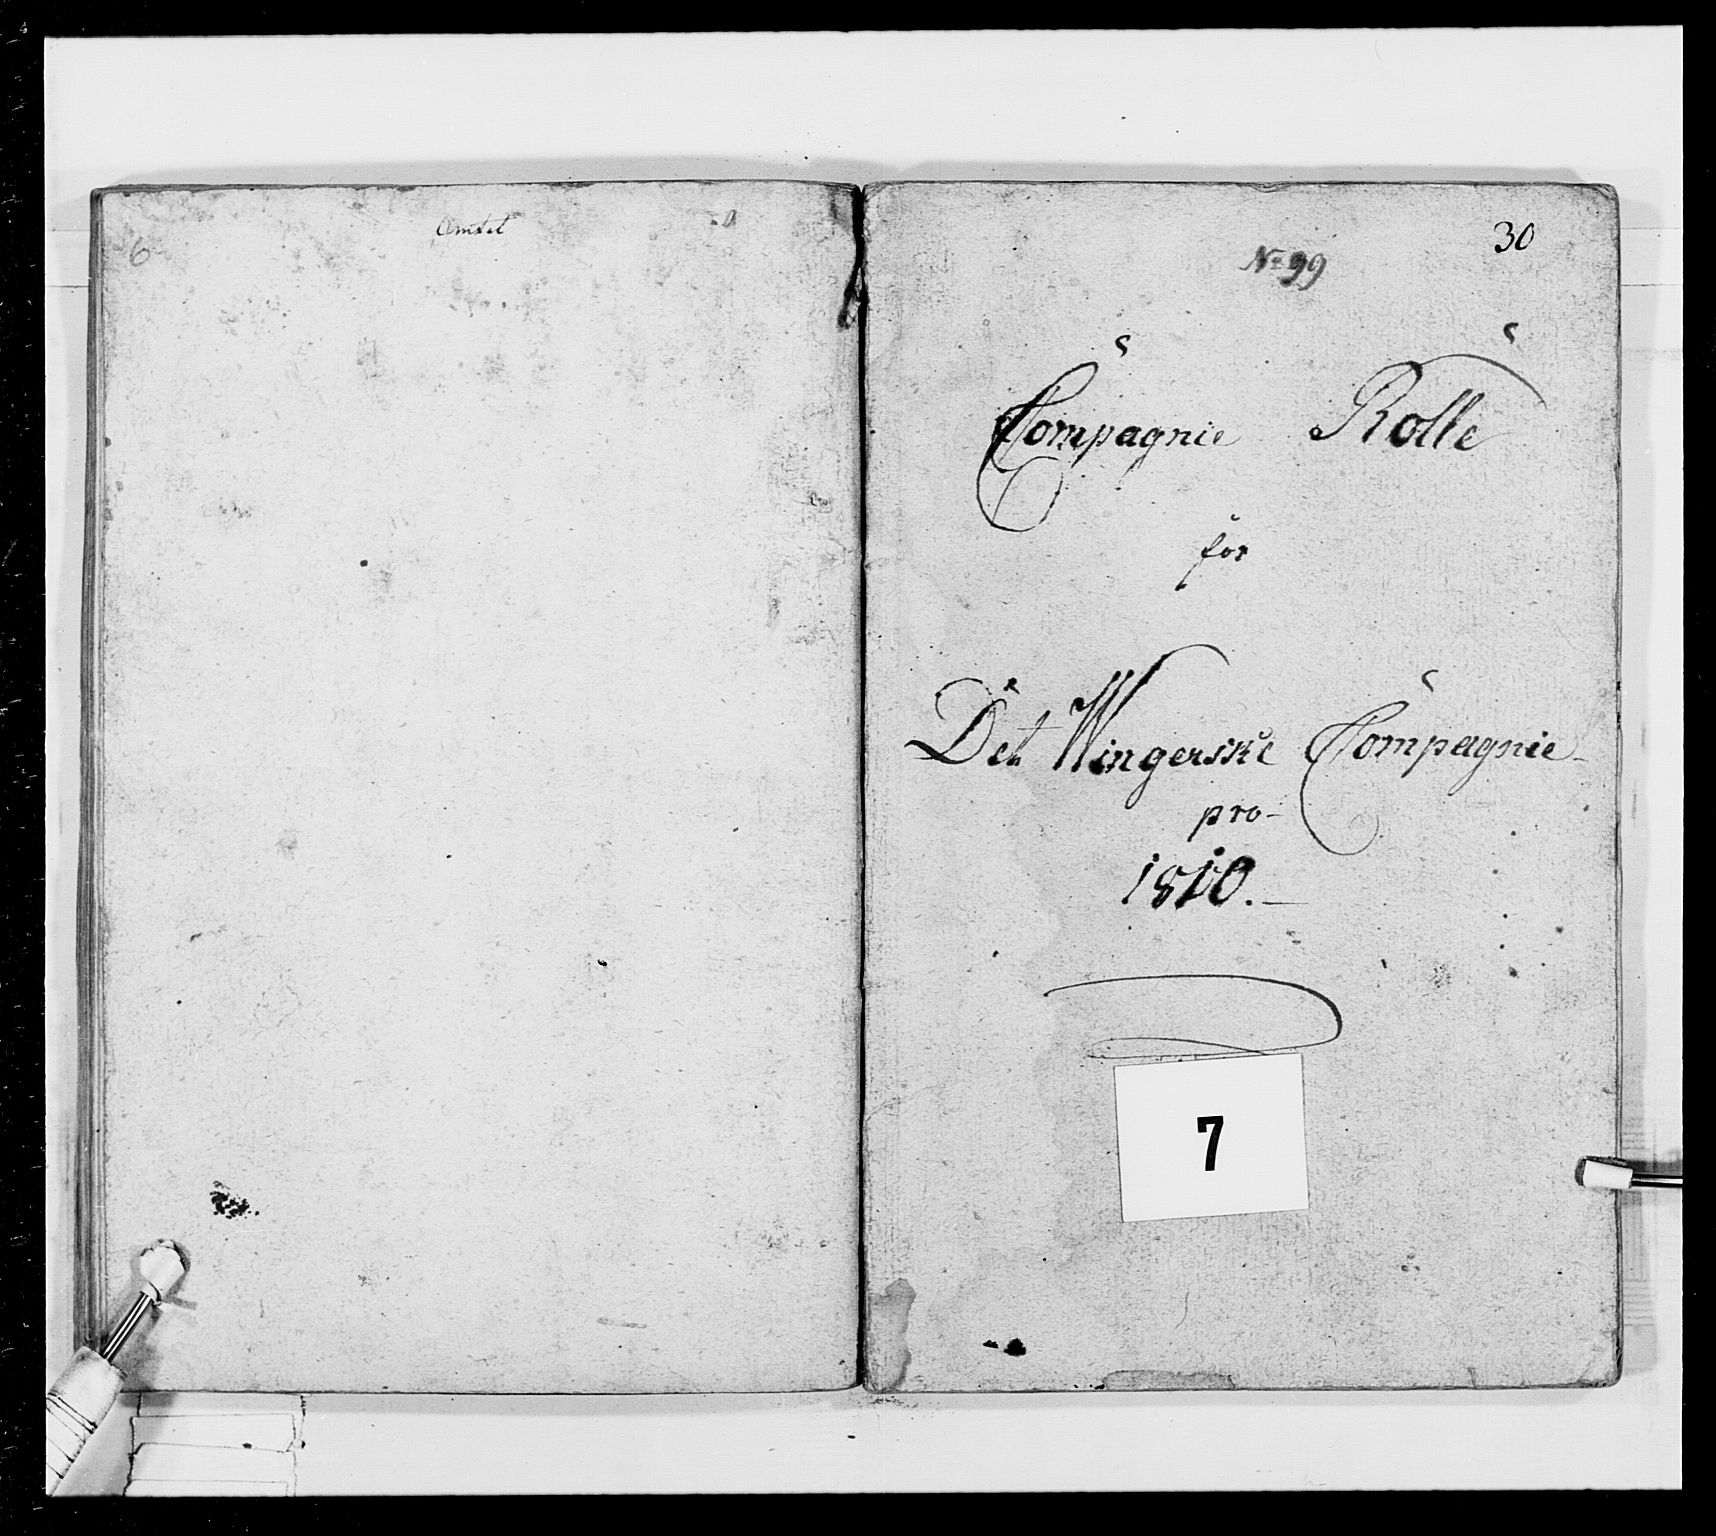 6
30
No 99
Compagnie Rolle
for
Det Wingerske Compagnie
pro-
1810.
7